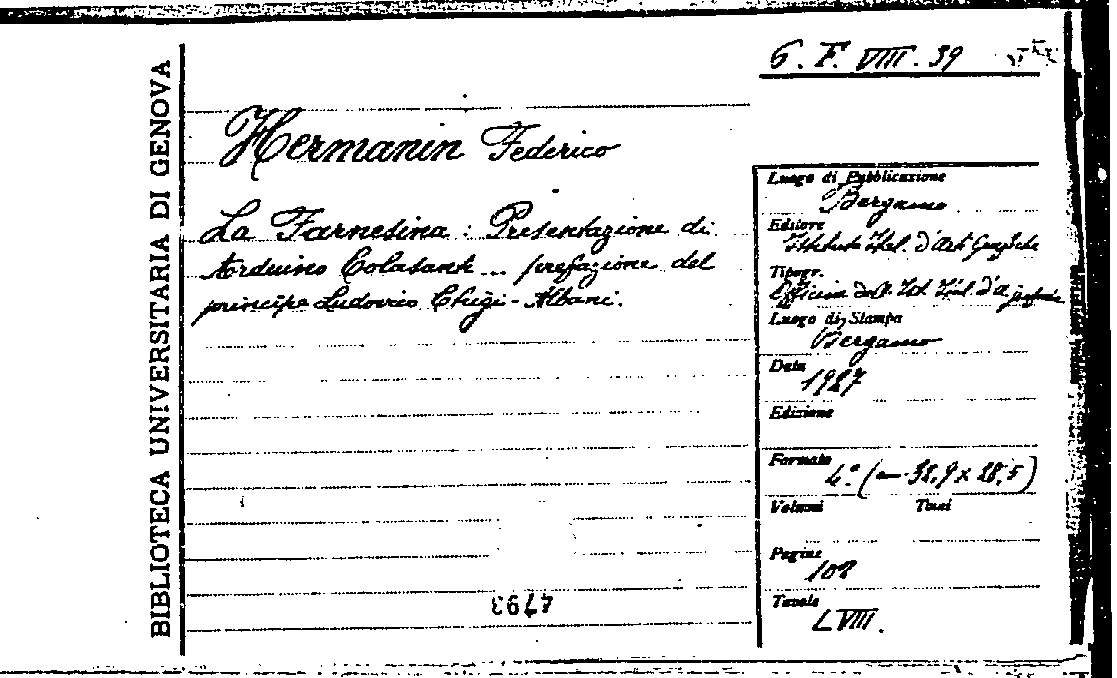 BIBLIOTECA UNIVERSITARIA DI GENOVA
6. F. VIII. 39
Hermanin Federico
La Farnesina : Presentazione di
Arduino Colasanti ... prefazione del
principe Ludovico Chigi-Albani.
Luogo di Pubblicazione
Bergamo
Editore
Istituto Ital. d'Arti Grafiche
Tipogr.
Officine dell'Ist. Ital. d'A. grafiche
Luogo di Stampa
Bergamo
Data
1927
Edizione
Formato
4.° (= 38,9 x 28,5)
Volumi Tomi
Pagine
108
Tavole
LVIII.